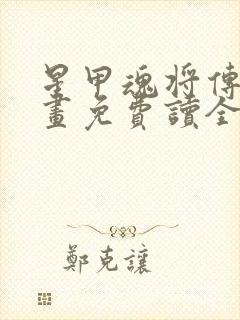 星甲魂將傳
畫免費讀全
鄭克讓